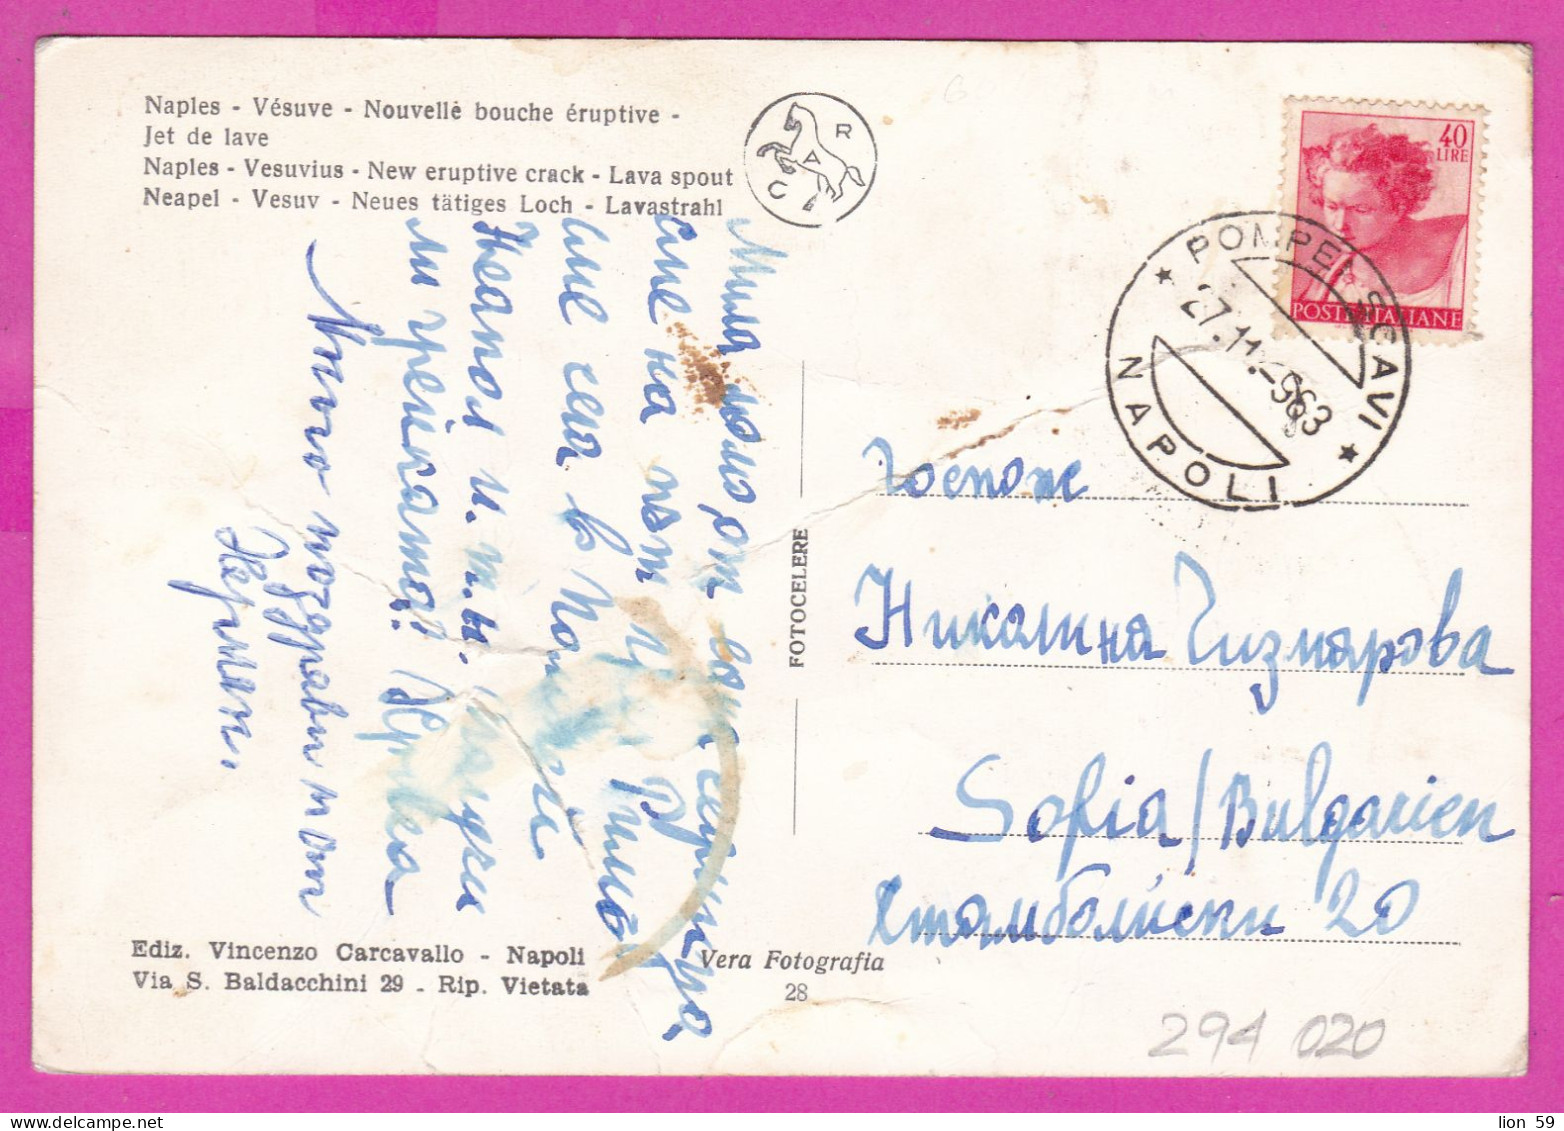 Naples - Vésuve - Nouvellè bouche éruptive -
Jet de lave
Naples - Vesuvius - New eruptive crack - Lava spout
Neapel - Vesuv - Neues tätiges Loch - Lavastrahl
C A R
40
LIRE
POSTE ITALIANE
POMPEI SCAVI
27.11.-963
NAPOLI
Мила от
сме на път
сме сега в
Неапол и. т.н.
ли грейката?
Много поздрави
Херман.
FOTOCELERE
Госпоже
Николина Чизмарова
Sofia/Bulgarien
Стамболийски 20
Ediz. Vincenzo Carcavallo - Napoli
Via S. Baldacchini 29 - Rip. Vietata
Vera Fotografia
28
294 020
lion 59